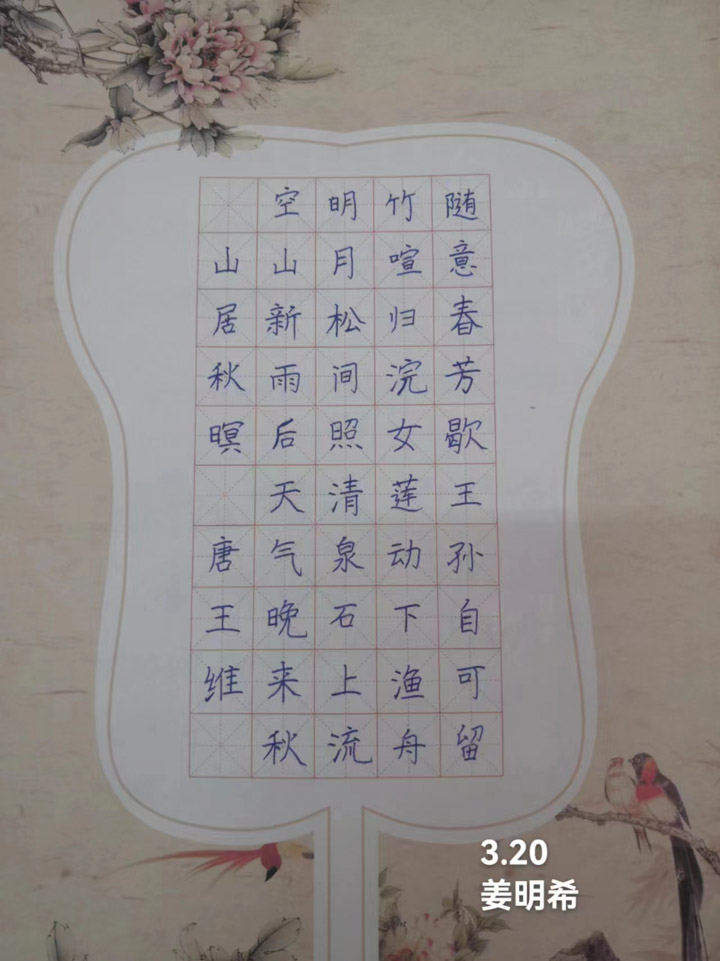 山居秋暝 唐王维
空山新雨后天气晚来秋
明月松间照清泉石上流
竹喧归浣女莲动下渔舟
随意春芳歇王孙自可留
3.20
姜明希